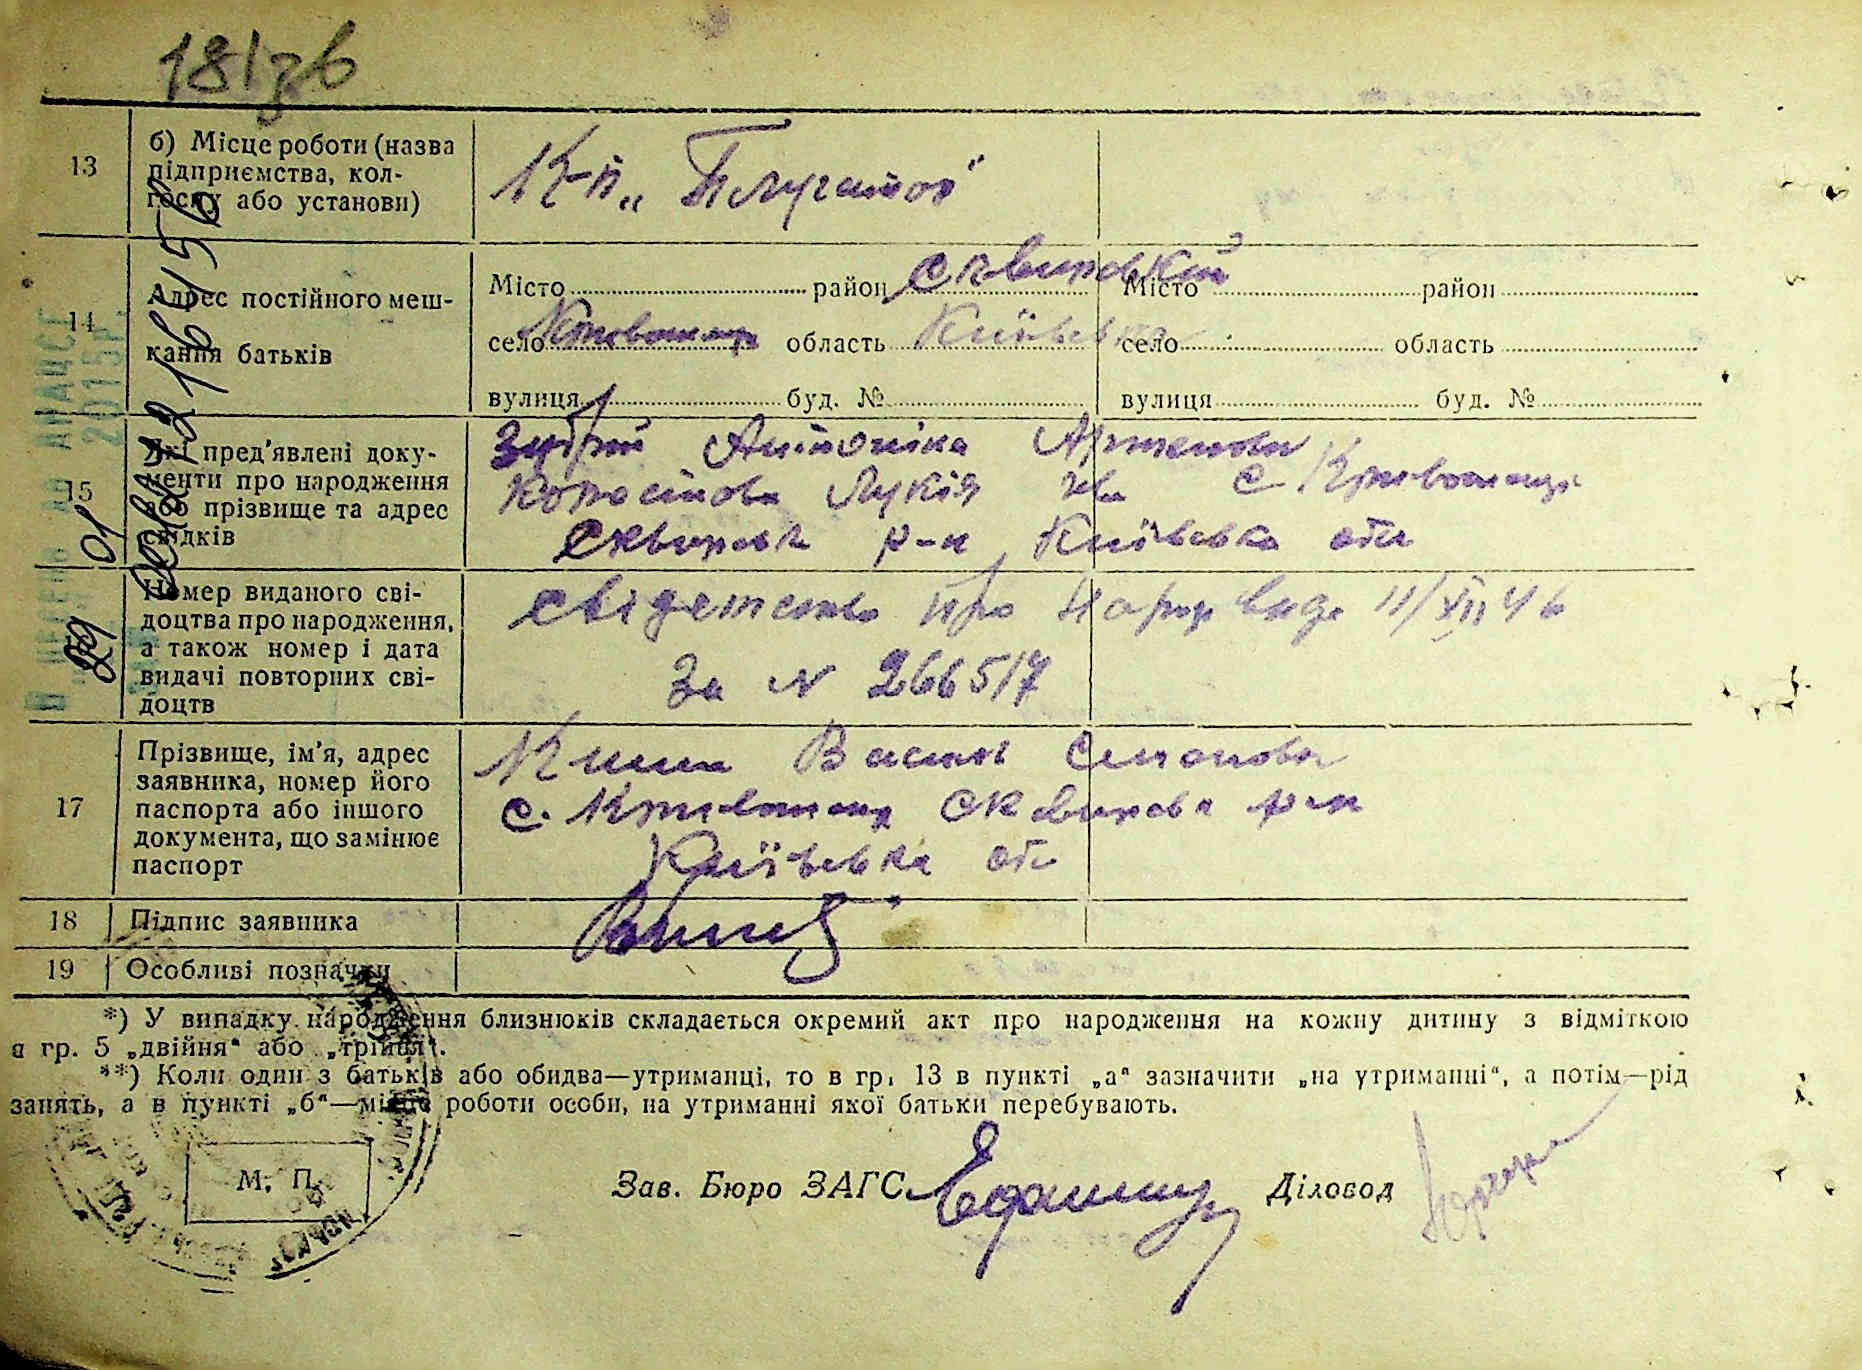 181зв
13 б) Місце роботи (назва
підприємства, кол-
госпу або установи)
К-п „
14 Адрес постійного меш-
кання батьків
Місто район Сквирський Місто район
село Кривошиїнці область Київська село область
вулиця буд. № вулиця буд. №
15 Які пред'явлені доку-
менти про народження
або прізвище та адрес
свідків
Антоніна Артемовна
Лукія с. Кривошиїнці
Сквирська р-н Київська обл
Номер виданого сві-
доцтва про народження,
а також номер і дата
видачі повторних сві-
доцтв
Свідетство про 11/XII 46
За N 266517
17 Прізвище, ім'я, адрес
заявника, номер його
паспорта або іншого
документа, що замінює
паспорт
с. Кривошиїнці Сквирська р-н
Київська обл
18 Підпис заявника
19 Особливі позначки
*) У випадку народження близнюків складається окремий акт про народження на кожну дитину з відміткою
в гр. 5 „двійня“ або „трійня“.
**) Коли один з батьків або обидва—утриманці, то в гр. 13 в пункті „а“ зазначити „на утриманні“, а потім—рід
занять, а в пункті „б“—місце роботи особи, на утриманні якої батьки перебувають.
М. П.
Зав. Бюро ЗАГС Діловод